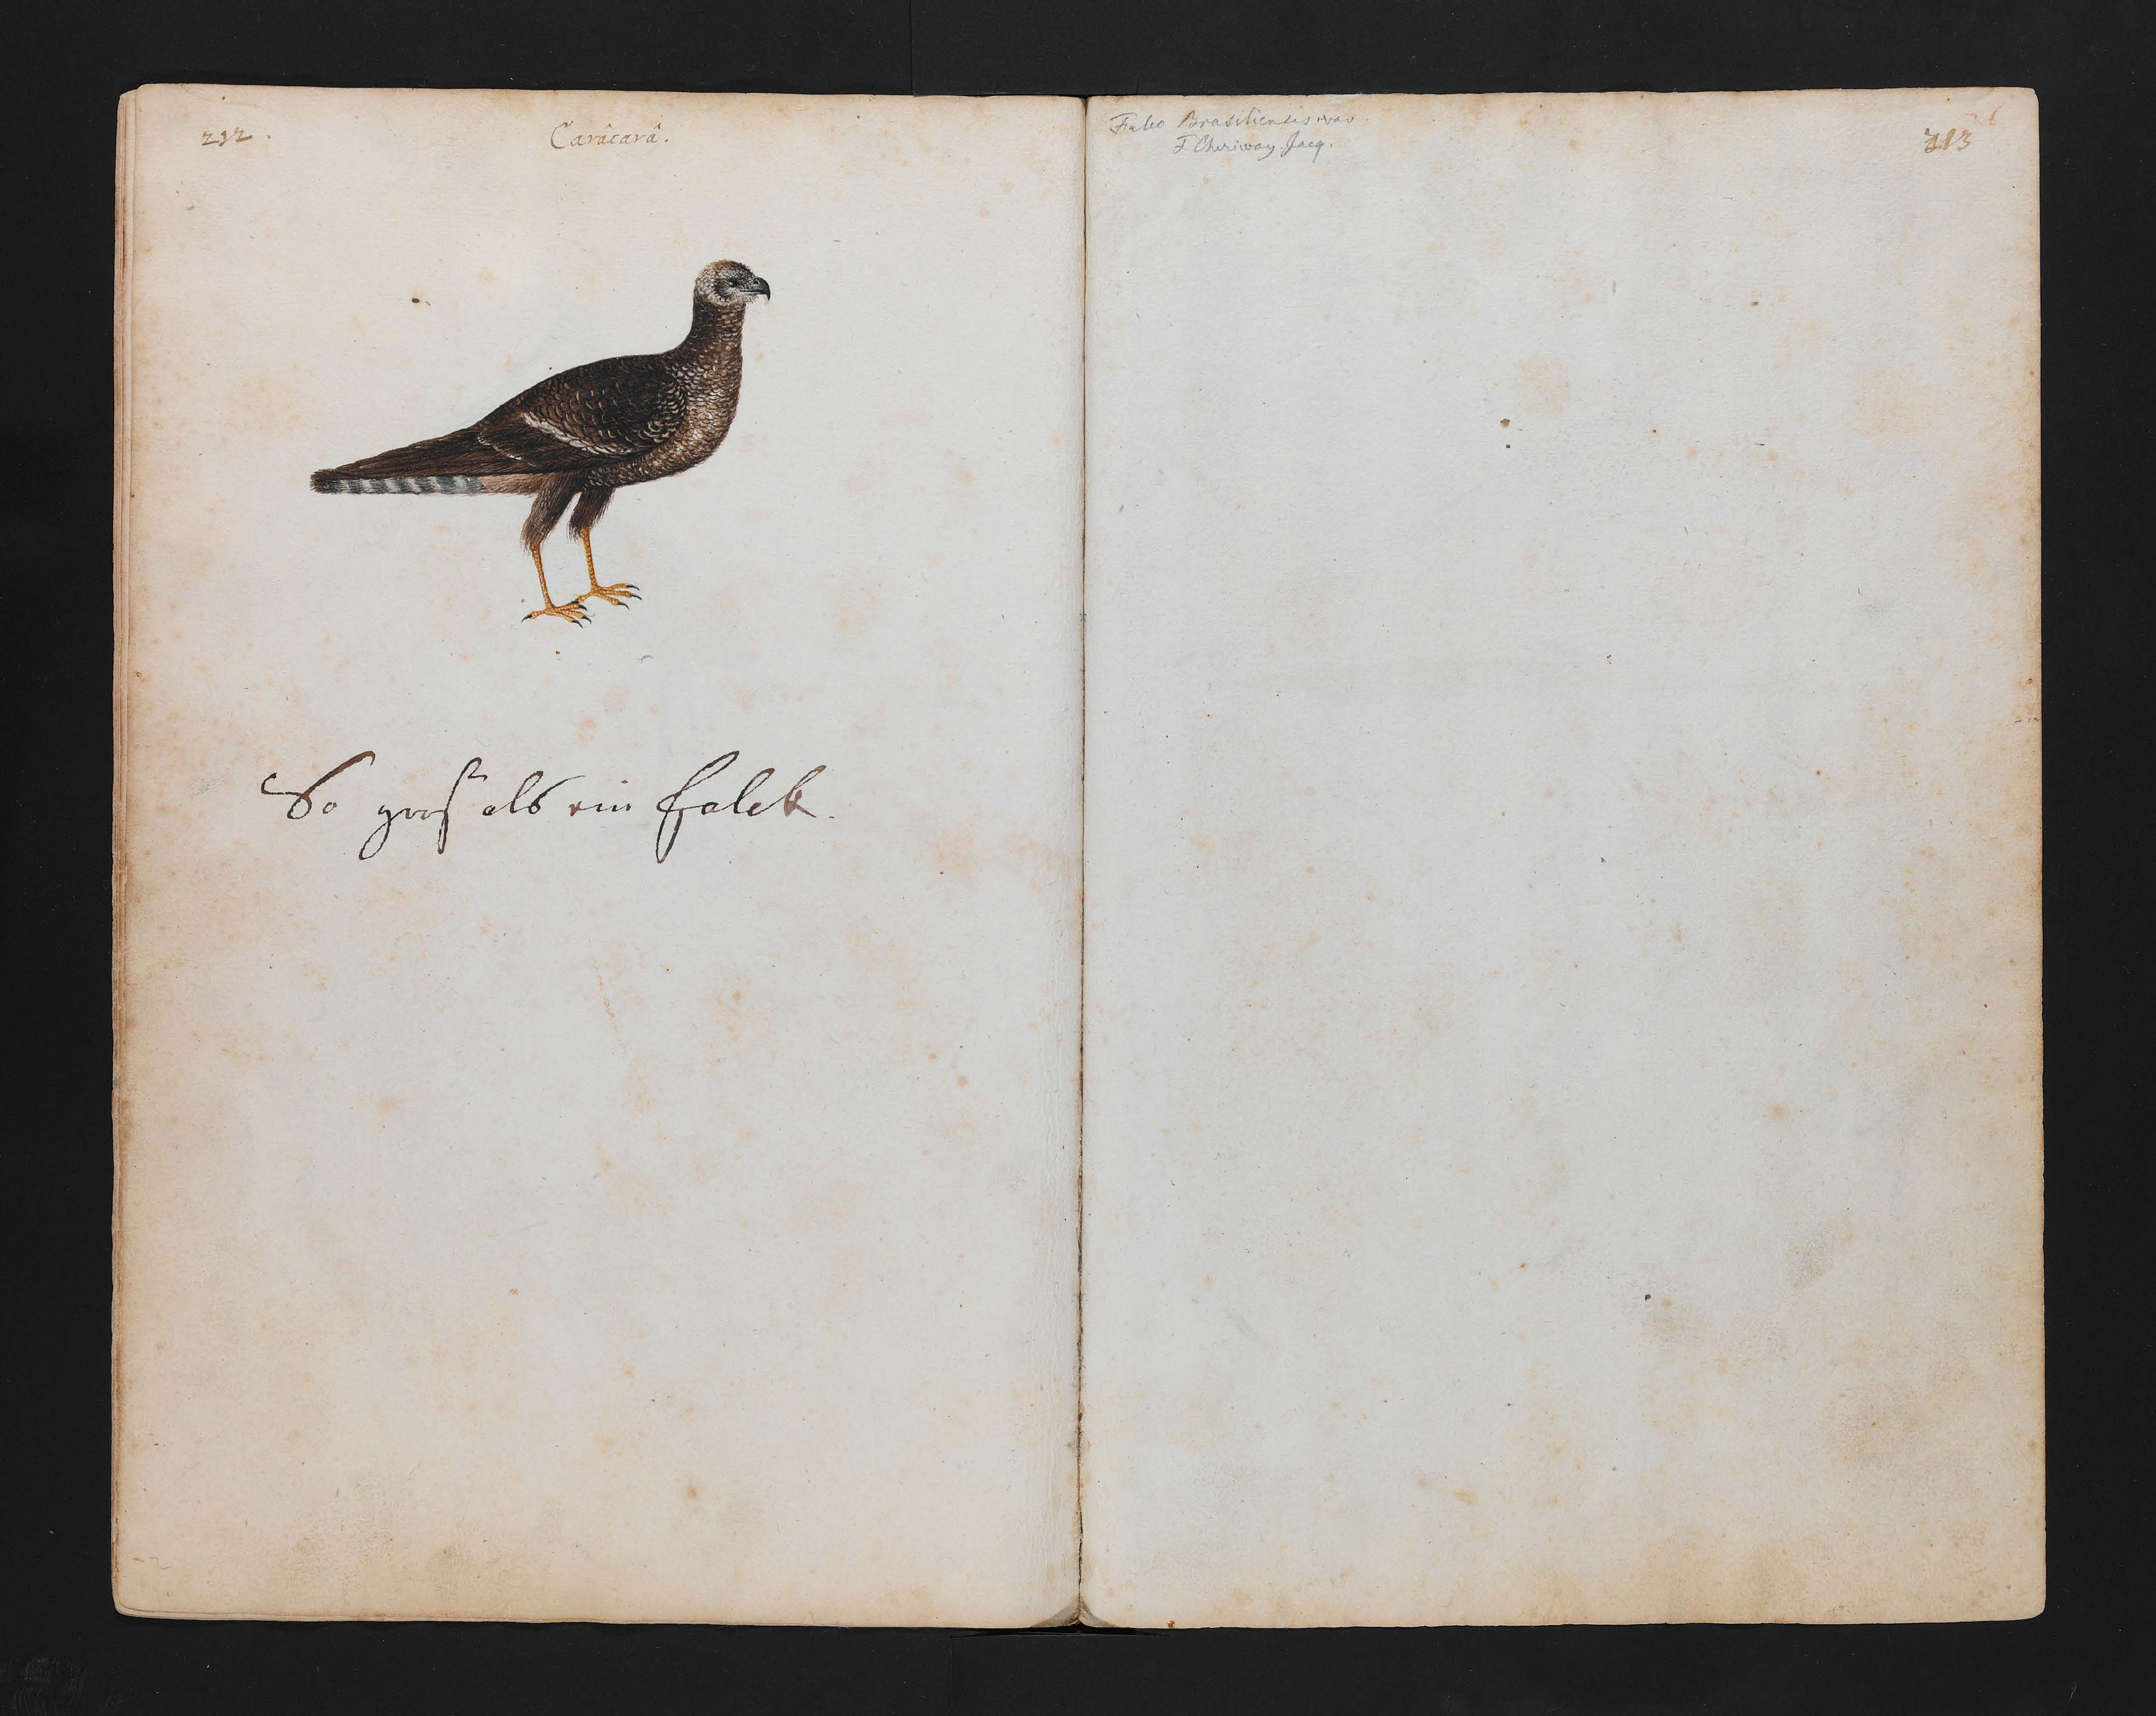 212.
Carâcarâ.
So groß als ein Falck.
Falco Brasiliensis var.
F Cheriway. Jacq.
213